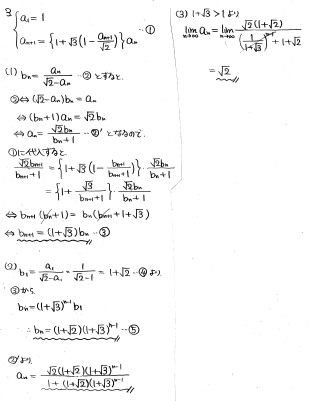 3
{ a₁ = 1
a_{n+1} = {1+√3(1 - a_{n+1}/√2)}a_n …①
(1) b_n = a_n/(√2-a_n) …② とすると、
②⇔(√2-a_n)b_n = a_n
⇔(b_n+1)a_n = √2b_n
⇔a_n = √2b_n/(b_n+1) …②' となるので、
①に代入すると
√2b_{n+1}/(b_{n+1}+1) = {1+√3(1 - b_{n+1}/(b_{n+1}+1))}・√2b_n/(b_n+1)
= {1+ √3/(b_{n+1}+1)}・√2b_n/(b_n+1)
⇔ b_{n+1}(b_n+1) = b_n(b_{n+1}+1+√3)
⇔ b_{n+1} = (1+√3)b_n …③
(2) b₁ = a₁/(√2-a₁) = 1/(√2-1) = 1+√2 …④ より
③から
b_n = (1+√3)^{n-1} b₁
∴ b_n = (1+√2)(1+√3)^{n-1} …⑤
②'より
a_n = √2(1+√2)(1+√3)^{n-1}/(1+(1+√2)(1+√3)^{n-1})
(3) 1+√3 > 1 より
lim_{n→∞} a_n = lim_{n→∞} √2(1+√2)/((1/(1+√3))^{n-1}+1+√2)
= √2